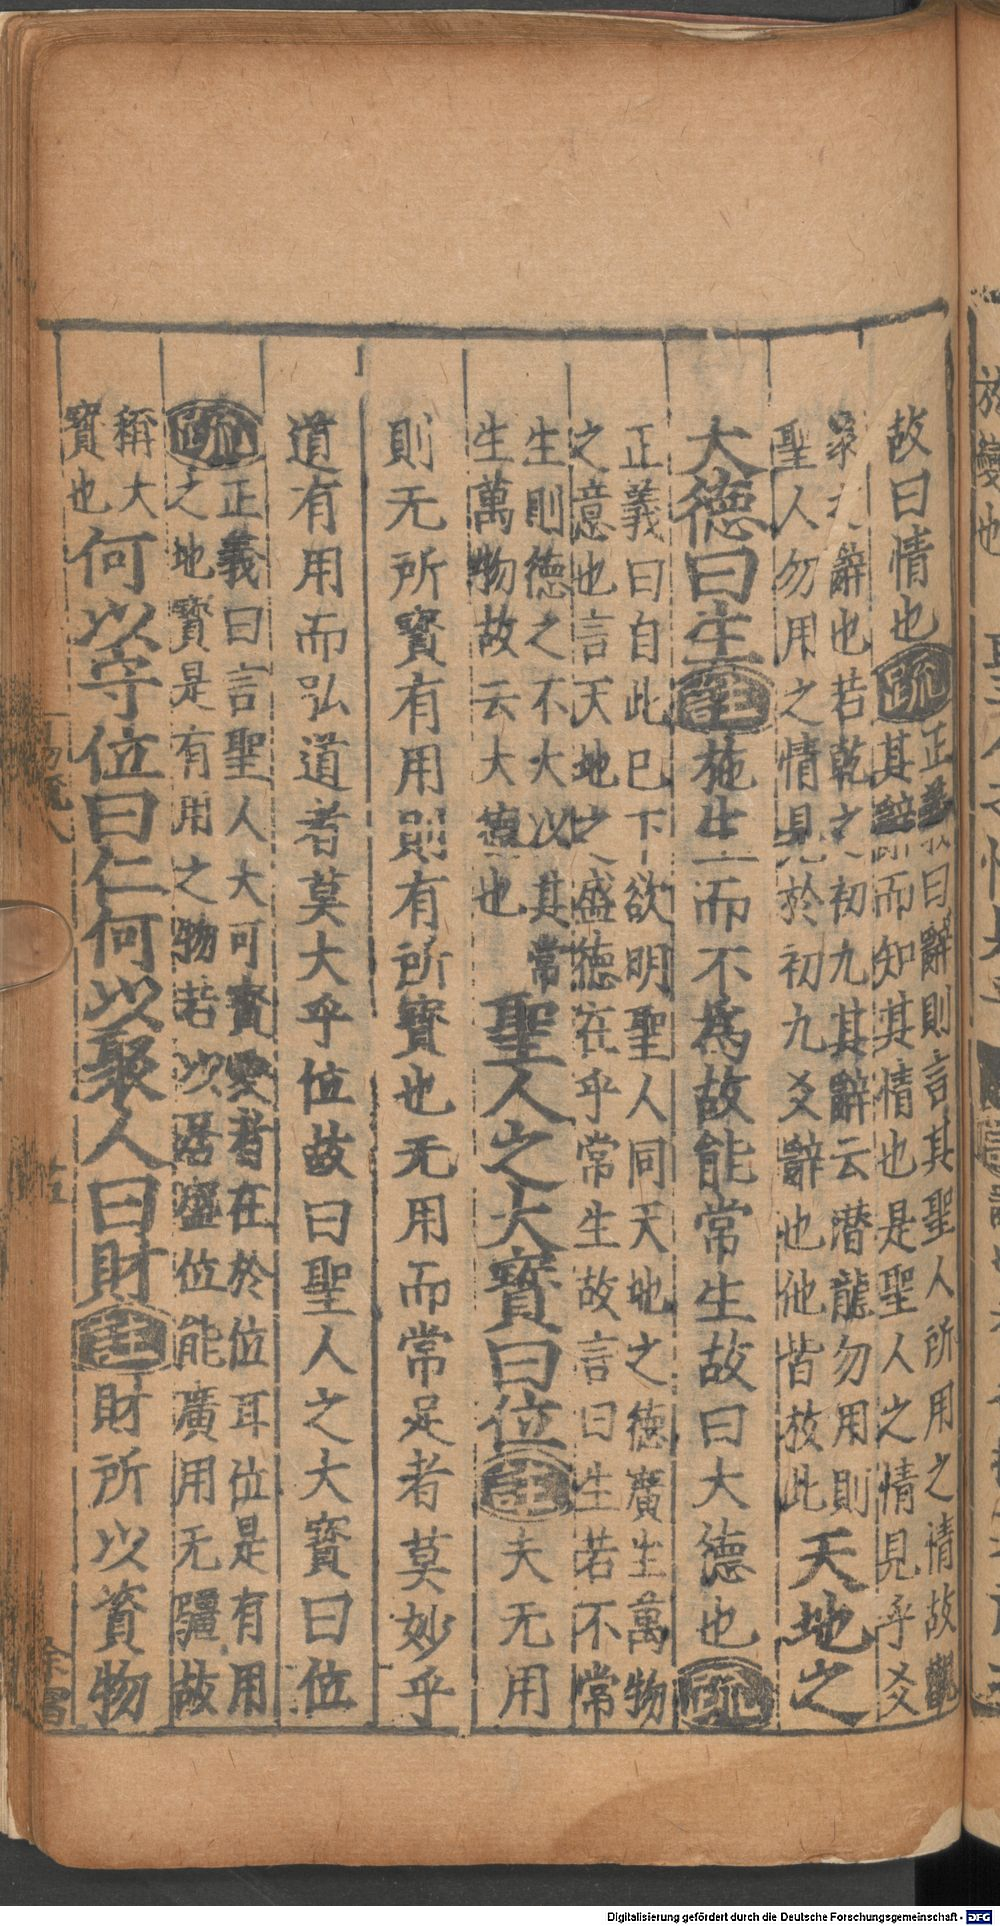 故曰情也疏正義曰辭則言其聖人所用之情故觀
其辭而知其情也是聖人之情見乎爻
象之辭也若乾之初九其辭云潜龍勿用則
聖人勿用之情見於初九爻辭也他皆放此天地之
大德曰生註施生而不為故能常生故曰大德也疏
正義曰自此已下欲明聖人同天地之德廣生萬物
之意也言天地之盛德在乎常生故言曰生若不常
生則德之不大以其常
生萬物故云大德也聖人之大寳曰位註夫无用
則无所寳有用則有所寳也无用而常足者莫妙乎
道有用而弘道者莫大乎位故曰聖人之大寳曰位
疏正義曰言聖人大可寳愛者在於位耳位是有用
之地寳是有用之物若以居盛位能廣用无疆故
稱大
寳也何以守位曰仁何以聚人曰財註財所以資物
Digitalisierung gefördert durch die Deutsche Forschungsgemeinschaft - DFG